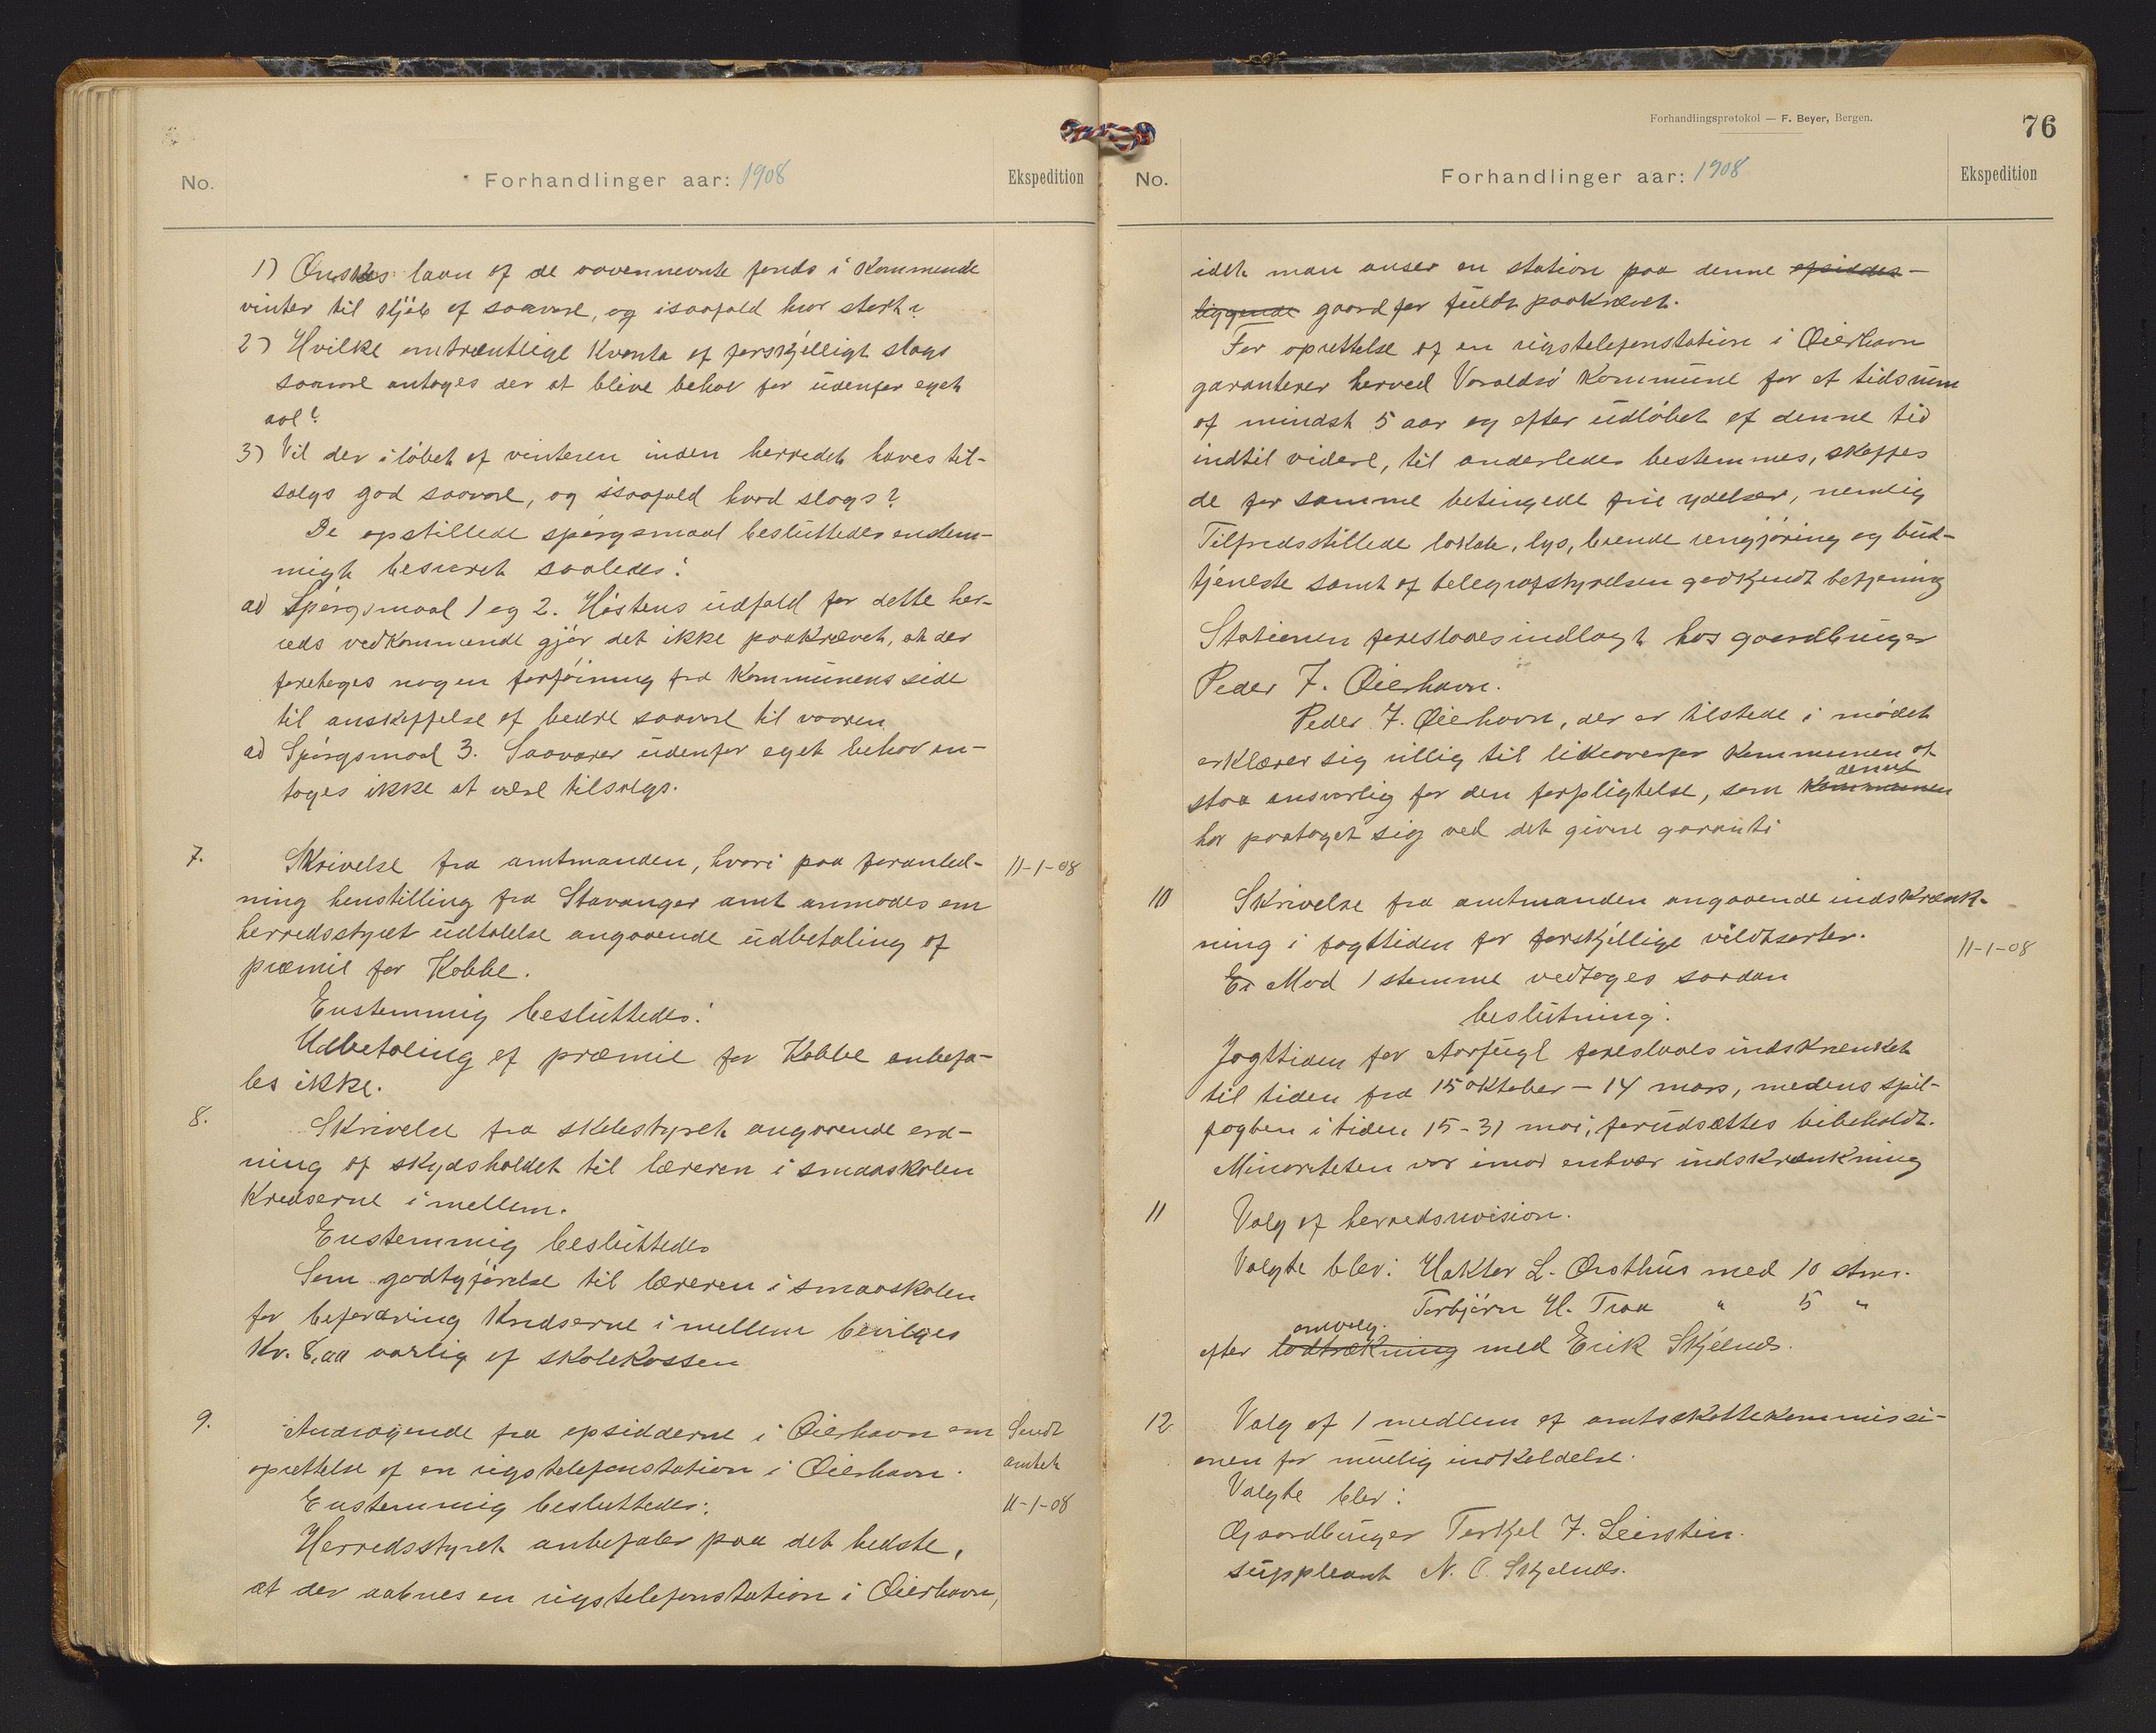 No. Forhandlinger aar: 1908 Ekspedition
1) Ønskes laan af de ovennevnte fonds i kommende
vinter til kjöb af saavare, og isaafald hvor stort?
2) Hvilke omtrentlige kvanta af forskjelligt slags
saavare antages der at blive behov for udenfor eget
avl?
3) Vil der i löbet af vinteren inden herredet haves til-
salgs god saavare, og isaafald hvad slags?
De opstillede spörgsmaal besluttedes enstem-
migt besvaret saaledes:
ad Spörgsmaal 1 og 2. Höstens udfald for dette her-
reds vedkommende gjör det ikke paakrævet, at der
foretages nogen forföining fra kommunens side
til anskaffelse af bedre saavare til vaaren
ad Spörgsmaal 3. Saavarer udenfor eget behov an-
tages ikke at være tilsalgs.
7. Skrivelse fra amtmanden, hvori paa foranled- 11-1-08
ning henstilling fra Stavanger amt anmodes om
herredsstyret udtalelse angaaende udbetaling af
præmie for Kobbe.
Enstemmig besluttedes:
Udbetaling af præmie for Kobbe anbefa-
les ikke.
8. Skrivelse fra skolestyret angaaende ord-
ning af skydsholdet til læreren i smaaskolen
Kredserne i mellem.
Enstemmig besluttedes
Som godtgjörelse til læreren i smaaskolen
for befordring Kredserne i mellem bevilges
Kr. 8,00 aarlig af skolekassen
9. Andragende fra opsidderne i Øierhavn om Sendt
oprettelse af en rigstelefonstation i Øierhavn. amtet
Enstemmig besluttedes: 11-1-08
Herredsstyret anbefaler paa det bedste,
at der aabnes en rigstelefonstation i Øierhavn,
Forhandlingsprotokol — F. Beyer, Bergen.
76
No. Forhandlinger aar: 1908 Ekspedition
idet man anser en station paa denne afsides-
liggende gaard for fuldt paakrævet.
For oprettelse af en rigstelefonstation i Øierhavn
garanterer herved Varaldsö Kommune for et tidsrum
af mindst 5 aar og efter udlöbet af denne tid
indtil videre, til anderledes bestemmes, skaffes
de for samme betingede frie ydelser, nemlig
Tilfredsstillede lokale, lys, brende rengjöring og bud-
tjeneste samt af telegrafstyrelsen godkjendt betjening
Stationen foreslaaes indlagt hos gaardbruger
Peder J. Øierhavn.
Peder J. Øierhavn, der er tilstede i mödet
erklærer sig villig til likeoverfor Kommunen at
denne
staa ansvarlig for den forpligtelse, som Kommunen
har paataget sig ved det givne garanti
10 Skrivelse fra amtmanden angaaende indskrænk-
ning i jagttiden for forskjellige vildtsorter. 11-1-08
En Mod 1 stemme vedtoges saadan
beslutning:
Jagttiden for Aarfugl foreslaaes indskrenket
til tiden fra 15 oktober - 14 mars, medens spil-
jagten i tiden 15-31 mai, forudsættes bibeholdt.
Minoriteten var imod enhver indskrænkning
11 Valg af herredsrevision.
Valgte blev: Haktor L. Øresthus med 10 stmr.
Torbjörn H. Traa " 5 "
omvalg.
efter lodtrækning med Erik Skjelnes.
12 Valg af 1 medlem af amtsskattekommissi-
onen for mulig indkaldelse.
Valgte blev:
Gaardbruger Terkjel J. Leirstein.
suppleant N. O. Skjelnes.